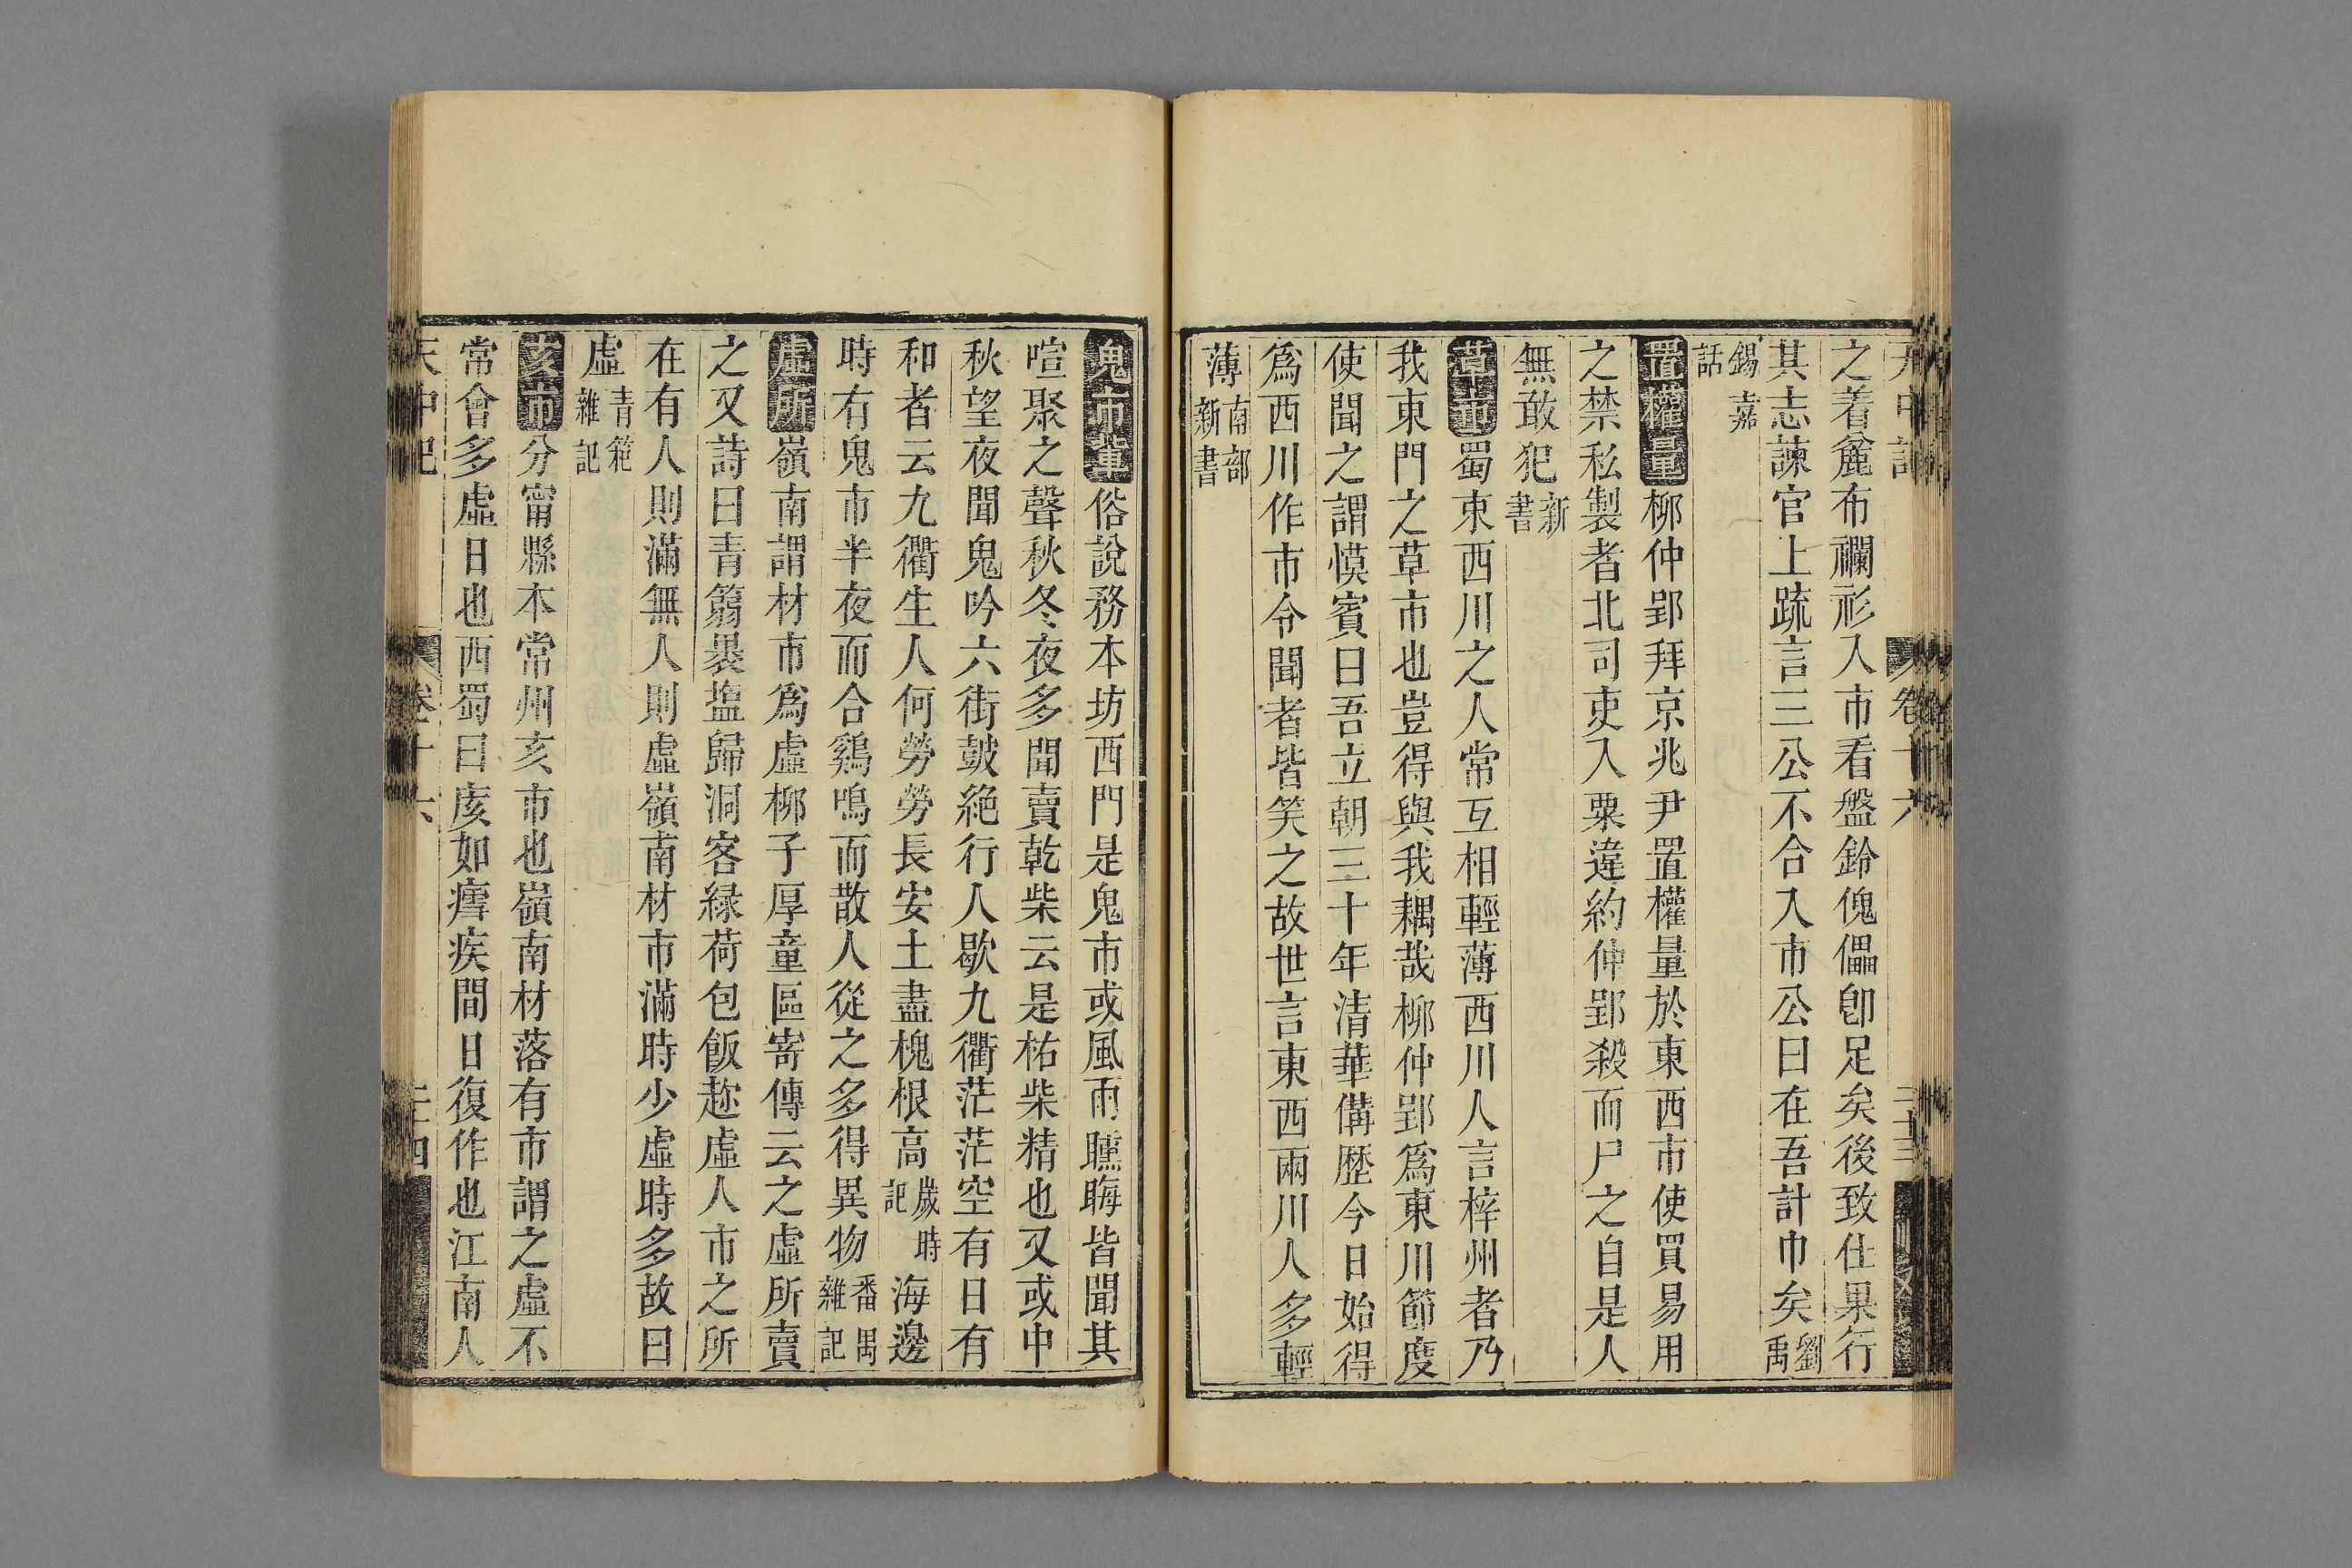 天中記 卷十六 二十三
之着麄布襴衫入市看盤鈴傀儡卽足矣後致仕果行
其志諫官上疏言三公不合入市公曰在吾計中矣劉禹
錫嘉話
置權量柳仲郢拜京兆尹置權量於東西市使買易用
之禁私製者北司吏入粟違約仲郢殺而尸之自是人
無敢犯新書
草市蜀東西川之人常互相輕薄西川人言梓州者乃
我東門之草市也豈得與我耦哉柳仲郢爲東川節度
使聞之謂慔賓曰吾立朝三十年清華備歷今日始得
爲西川作市令聞者皆笑之故世言東西兩川人多輕
薄南部新書
鬼市 俗說務本坊西門是鬼市或風雨曛晦皆聞其
喧聚之聲秋冬夜多聞賣乾柴云是枯柴精也又或中
秋望夜聞鬼吟六街鼓絶行人歇九衢茫茫空有日有
和者云九衢生人何勞勞長安土盡槐根高歲時記海邊
時有鬼市半夜而合鷄鳴而散人從之多得異物番禺雜記
虛所嶺南謂材市爲虛柳子厚童區寄傳云之虛所賣
之又詩曰青篛裹塩歸洞客緑荷包飯趂虛人市之所
在有人則滿無人則虛嶺南材市滿時少虛時多故曰
虛青箱雜記
亥市分甯縣本常州亥市也嶺南材落有市謂之虛不
常會多虛日也西蜀曰痎如瘧疾間日復作也江南人
天中記 卷十六 二十四